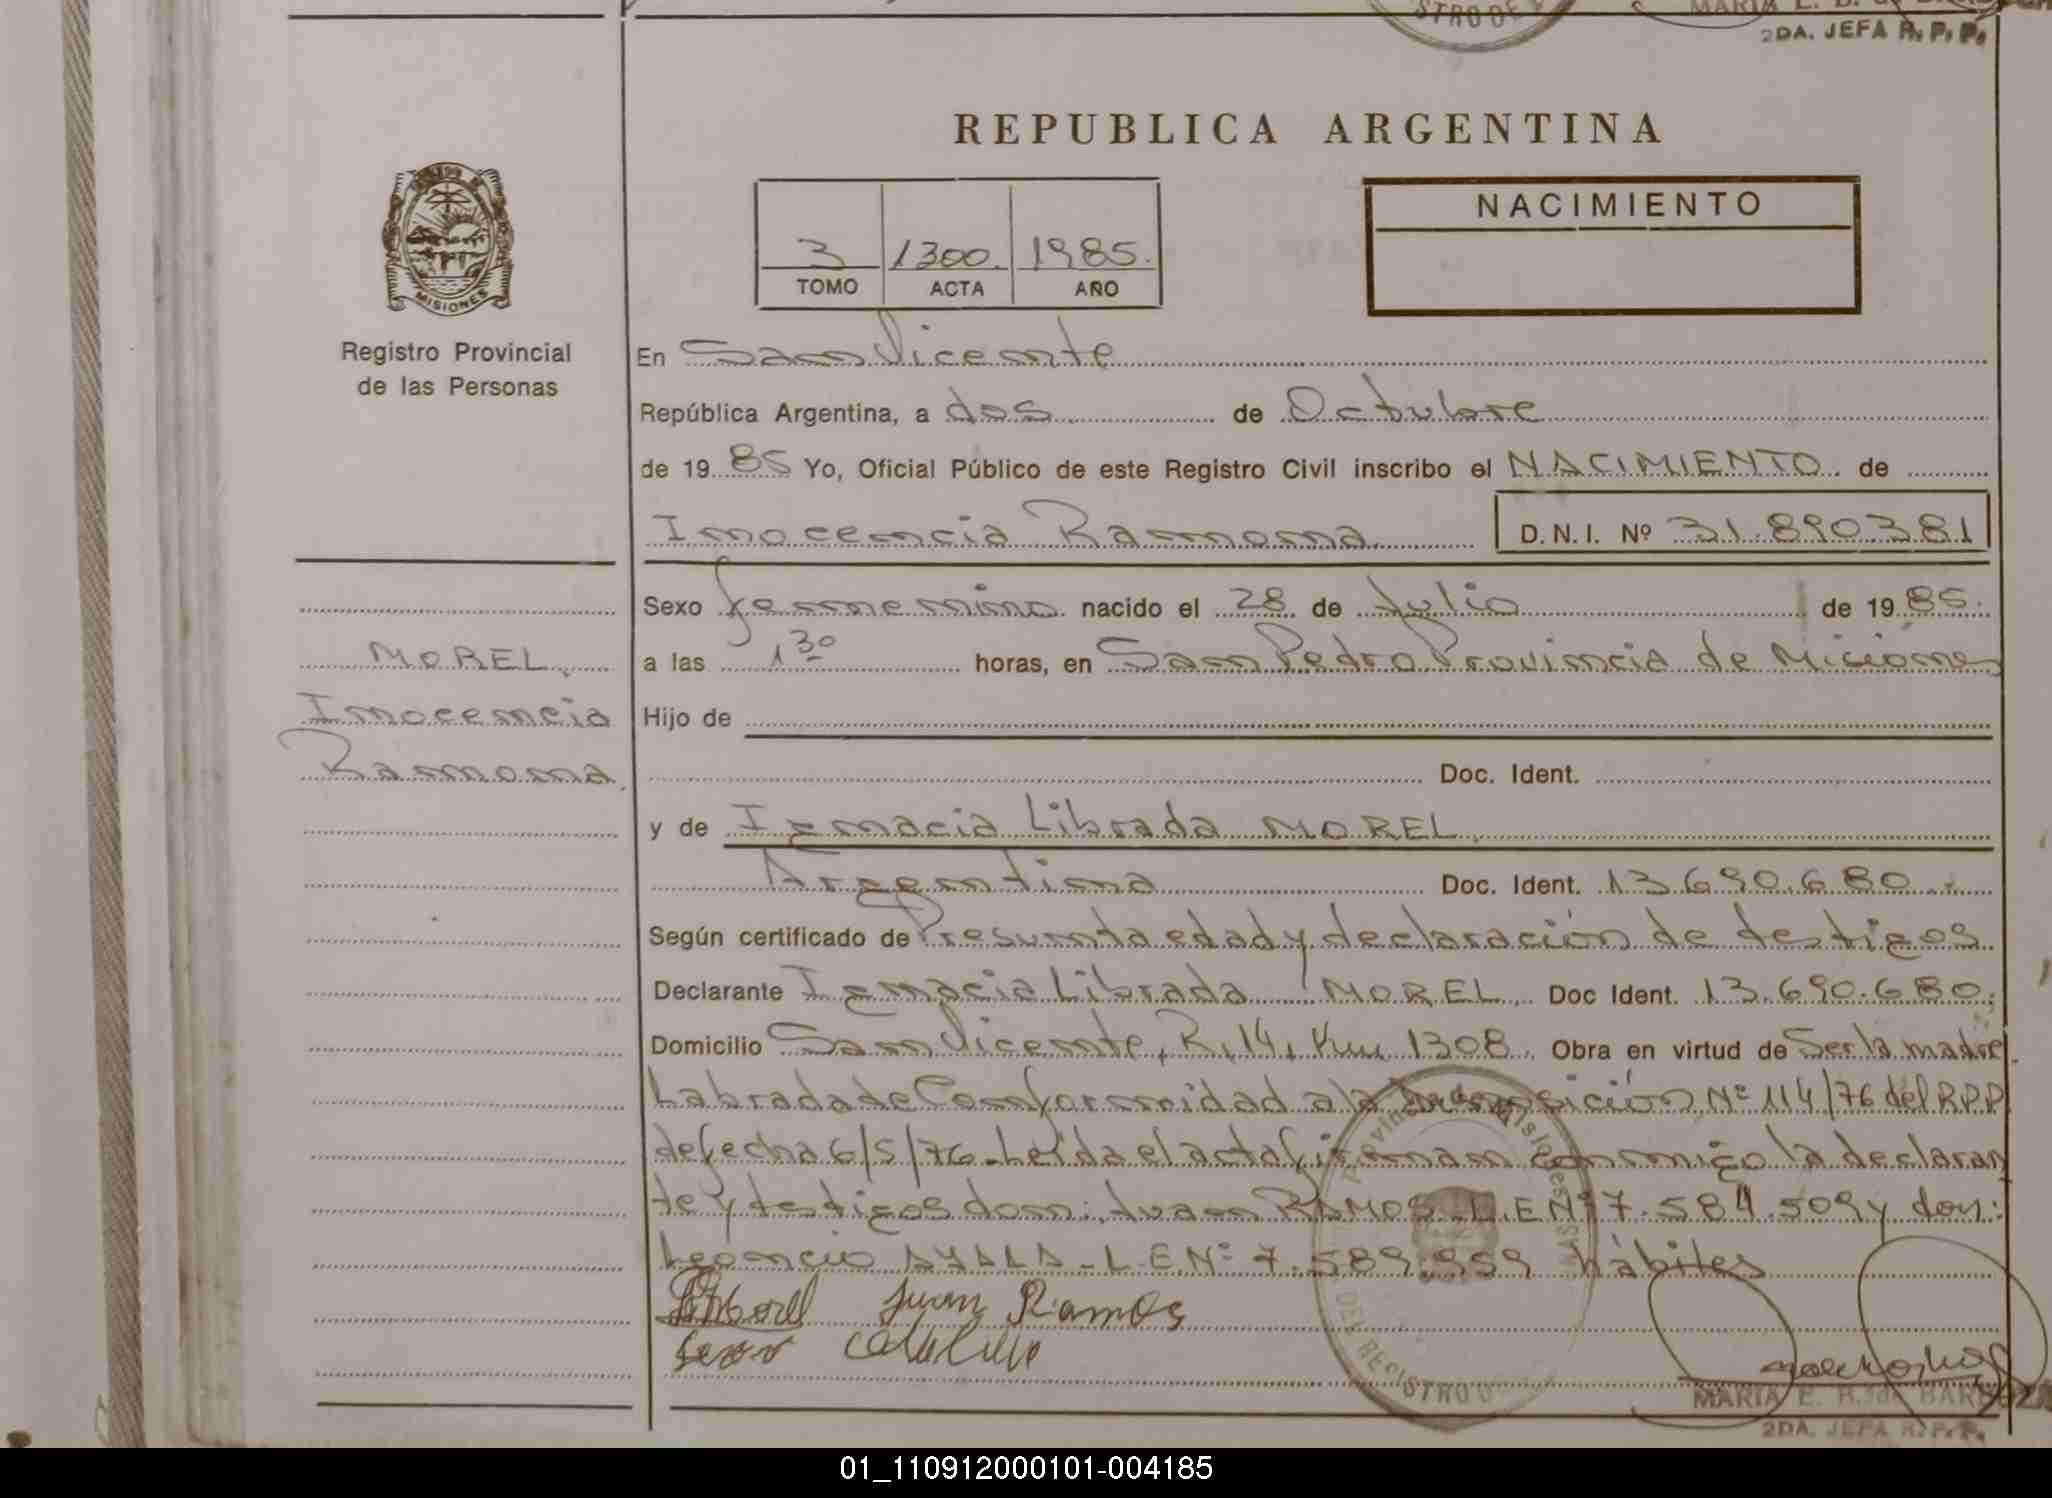 STRO DE
2DA. JEFA R. P. P.
REPUBLICA ARGENTINA
NACIMIENTO
3 1300. 1985.
TOMO ACTA AÑO
MISIONES
Registro Provincial
de las Personas
En San Vicente
República Argentina, a dos de Octubre
de 19 85 Yo, Oficial Público de este Registro Civil inscribo el NACIMIENTO de
Inocencia Ramona D.N.I. Nº 31.890381
Sexo femenino nacido el 28 de Julio de 19 85.
MOREL,
Inocencia
Ramona.
a las 1 30 horas, en San Pedro Provincia de Miciones
Hijo de
Doc. Ident.
y de Ignacia Librada MOREL,
Argentina Doc. Ident. 13.690.680.
Según certificado de Presunta edad y declaración de testigos
Declarante Ignacia Librada MOREL, Doc Ident. 13.690.680.
Domicilio San Vicente, R. 14, Km 1308. Obra en virtud de Ser la madre.
Labrada de Conformidad a la Nº 114/76 del R.P.P
de fecha 6/5/76. Leída el acta firman conmigo la declaran
te y testigos don: Juan RAMOS - L.E Nº 7.584.509 y don:
Leoncio AYALA - L.E Nº 7.589.959 hábiles
Juan Ramos
DEL REGISTRO
MARIA E.
2DA. JEFA R. P. P.
01_110912000101-004185